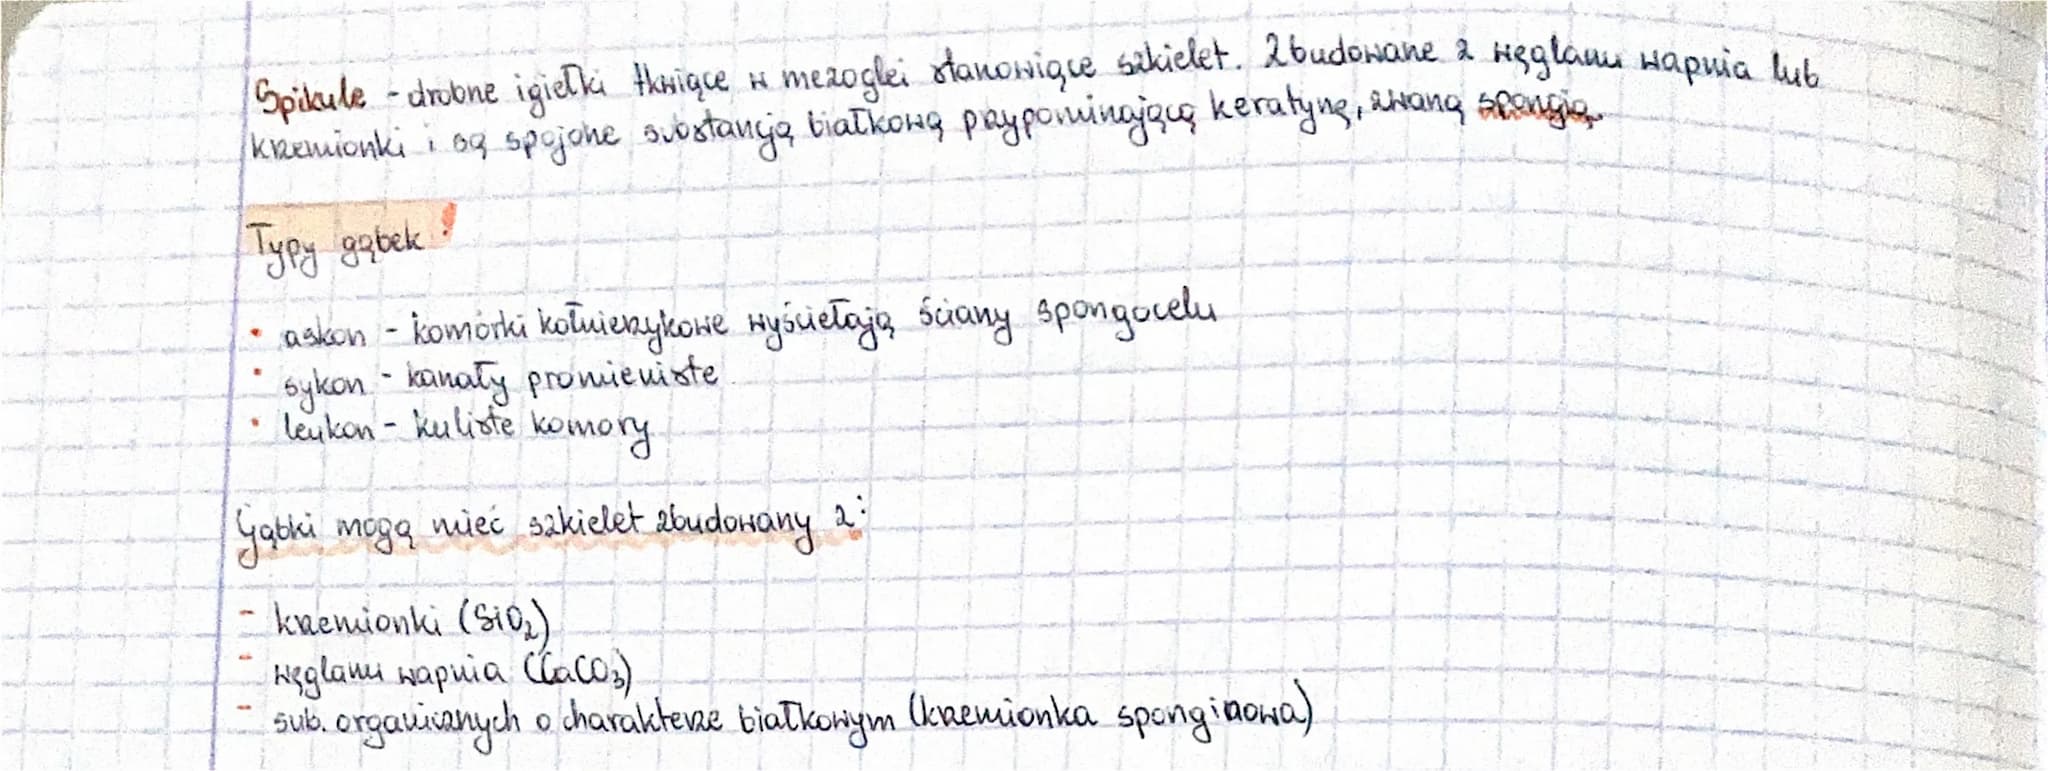 Spikule - drobne igiełki tkwiące w mezoglei stanowiące szkielet. Zbudowane z węglanu wapnia lub
krzemionki i są spojone substancją białkową przypominającą keratynę, zwaną spongią
Typy gąbek:
• askon - komórki kołnierzykowe wyściełają ściany spongocelu
• sykon - kanały promieniste
• leukon - kuliste komory
Gąbki mogą mieć szkielet zbudowany z:
- krzemionki (SiO₂)
- węglanu wapnia (CaCO₃)
- sub. organicznych o charakterze białkowym (krzemionka sponginowa)